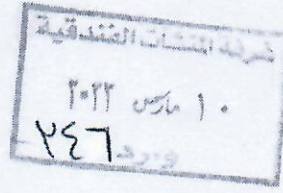 غرفة المنشآت الفندقية
١٠ مارس ٢٠٢٢
وارد ٣٤٦